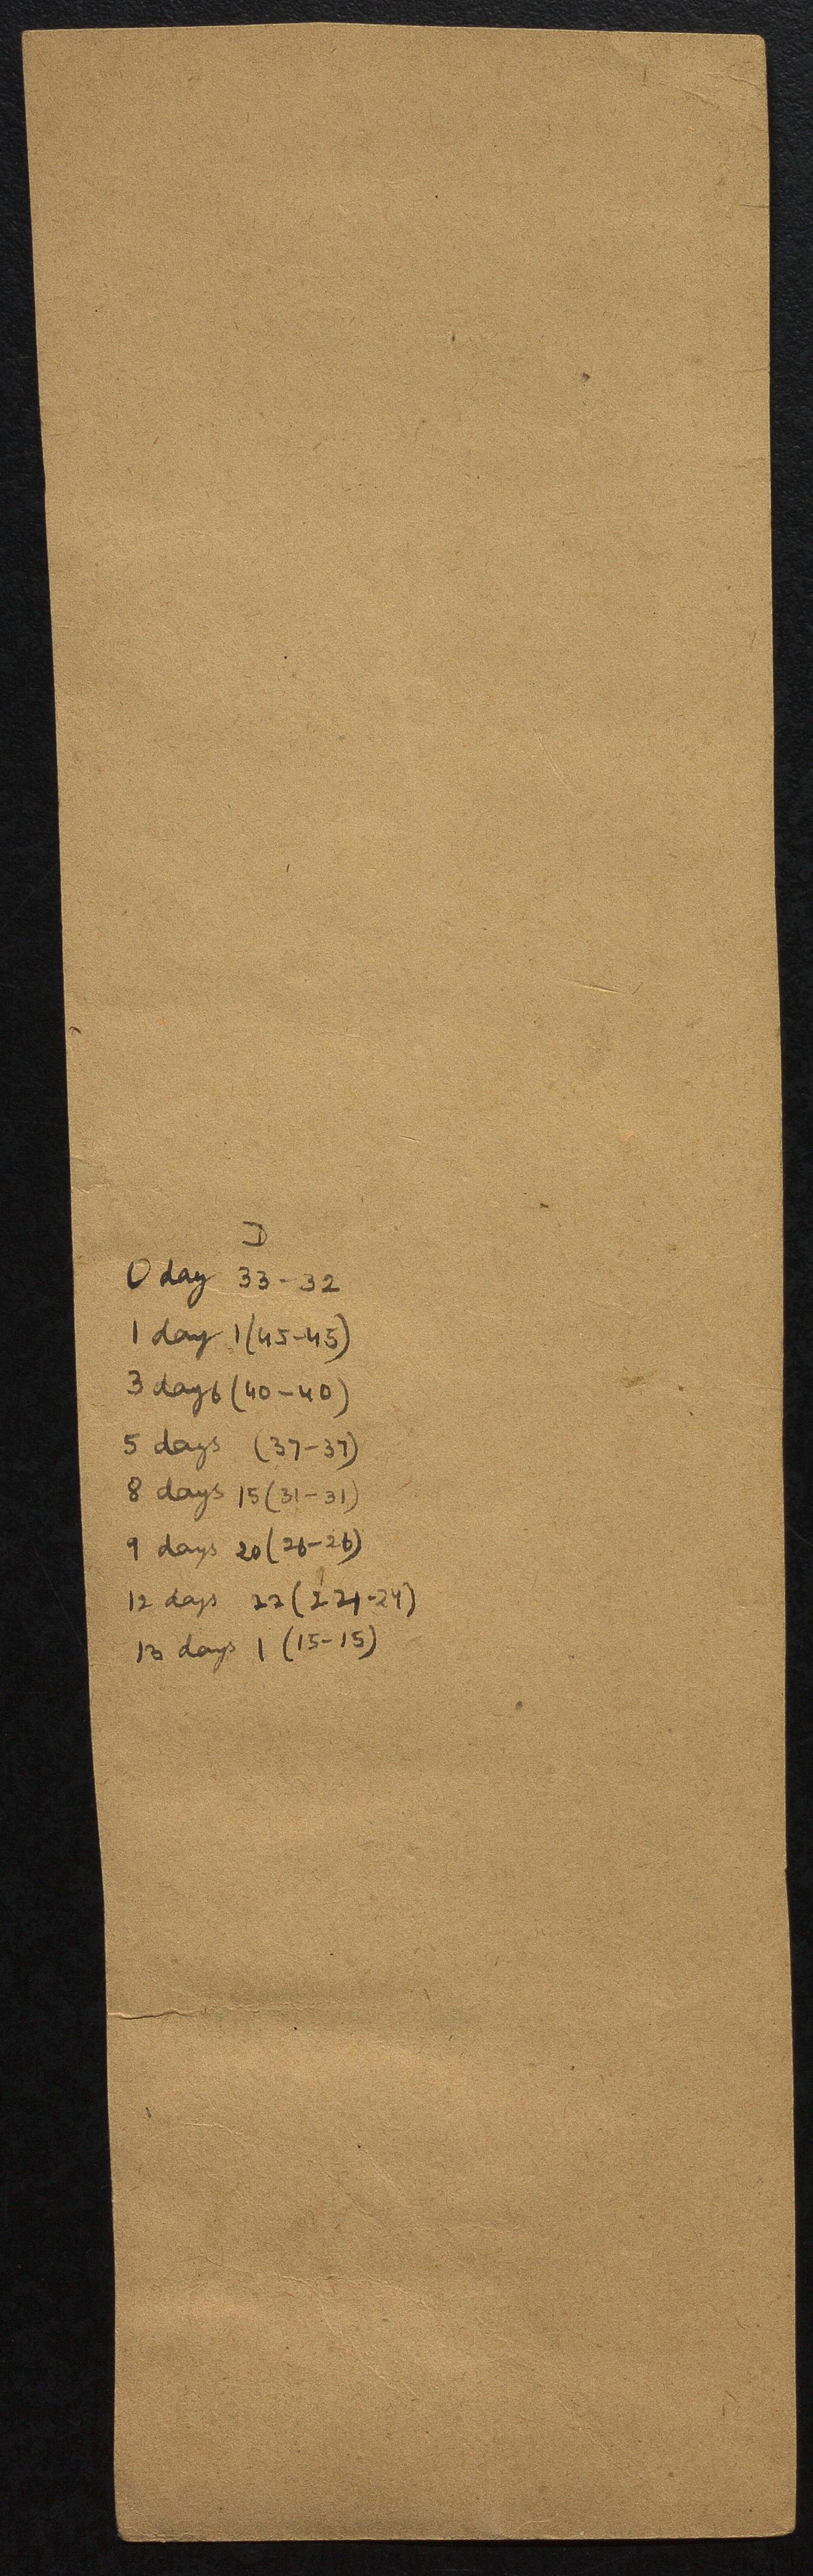 D
0 day 33-32
1 day 1(45-45)
3 days 6(40-40)
5 days (37-37)
8 days 15(31-31)
9 days 20(26-26)
12 days 22(24-24)
13 days 1 (15-15)